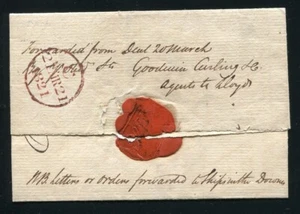 Forwarded from Deal 20 March
Goodwin Curling & Co
Agents to Lloyds
NB Letters or Orders forwarded to Ships in the Downs